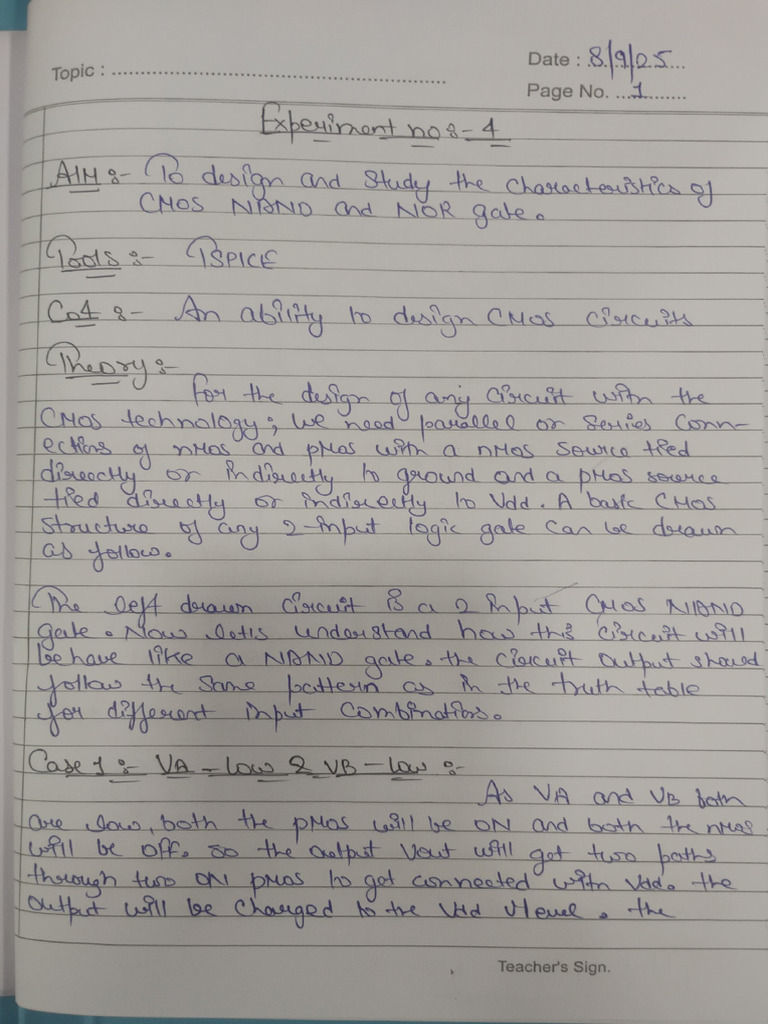 Topic : ................................................
Date : 8/9/25
Page No. ...1........
Experiment no:- 4
AIM :- To design and study the characteristics of
CMOS NAND and NOR gate.
Tools :- TSPICE
Co4 :- An ability to design CMOS circuits
Theory :-
for the design of any circuit with the
CMOS technology; we need parallel or series conn-
ections of nMOS and pMOS with a nMOS source tied
directly or indirectly to ground and a pMOS source
tied directly or indirectly to Vdd. A basic CMOS
structure of any 2-input logic gate can be drawn
as follow.
The left drawn circuit is a 2 input CMOS NAND
gate. Now let's understand how this circuit will
behave like a NAND gate. the circuit output should
follow the same pattern as in the truth table
for different input combinations.
Case 1 :- VA - low & VB - low :-
As VA and VB both
are low, both the pMOS will be ON and both the nMOS
will be off. so the output Vout will get two paths
through two ON pMOS to get connected with Vdd. the
output will be charged to the Vdd level. the
Teacher's Sign.